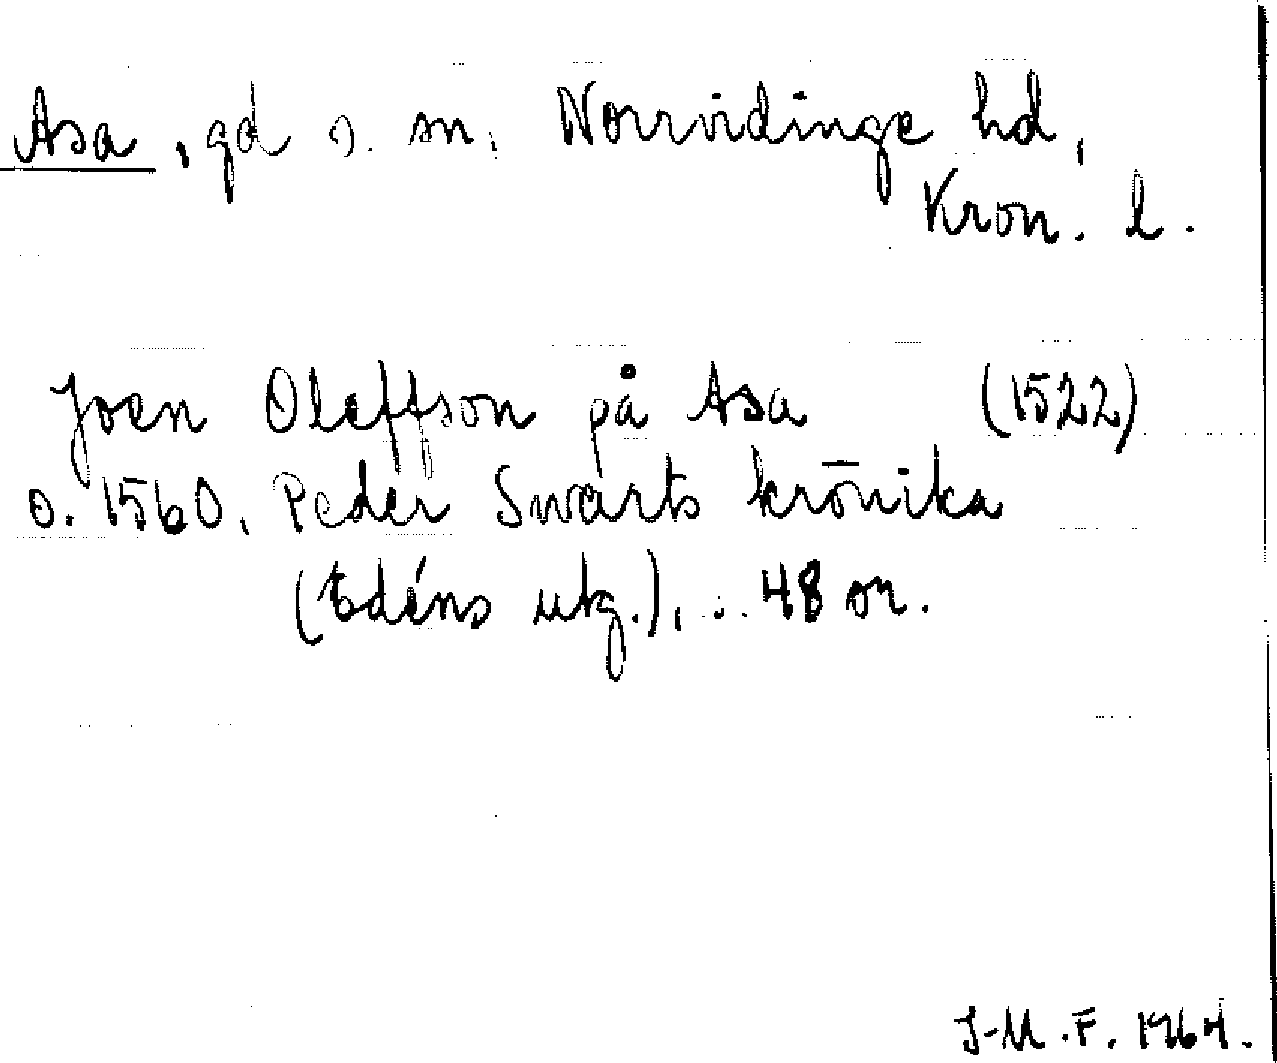 Asa, gd o. sn, Norrvidinge hd,
Kron. l.
Joen Oleffson på Asa (1522)
o. 1560. Peder Swarts krönika
(Edéns utg.), s. 48 or.
J-M.F. 1964.